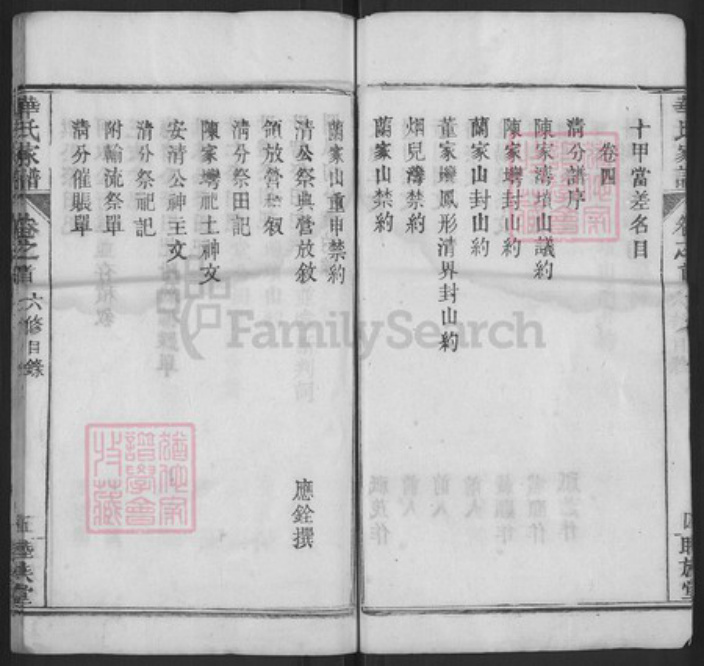 十甲當差名目
卷四
淸分譜序
陳家灣墳山議約
陳家灣封山約
蘭家山封山約
董家壪鳳形清界封山約
烟兒灣禁約
蘭家山禁約
蘭家山重申禁約
清公祭典營放敘 應銓撰
領放營敘
清分祭田記
陳家灣祀土神文
安清公神主文
清分祭祀記
附輪流祭單
清分催賬單
華氏家譜 卷之首 六修目錄
FamilySearch